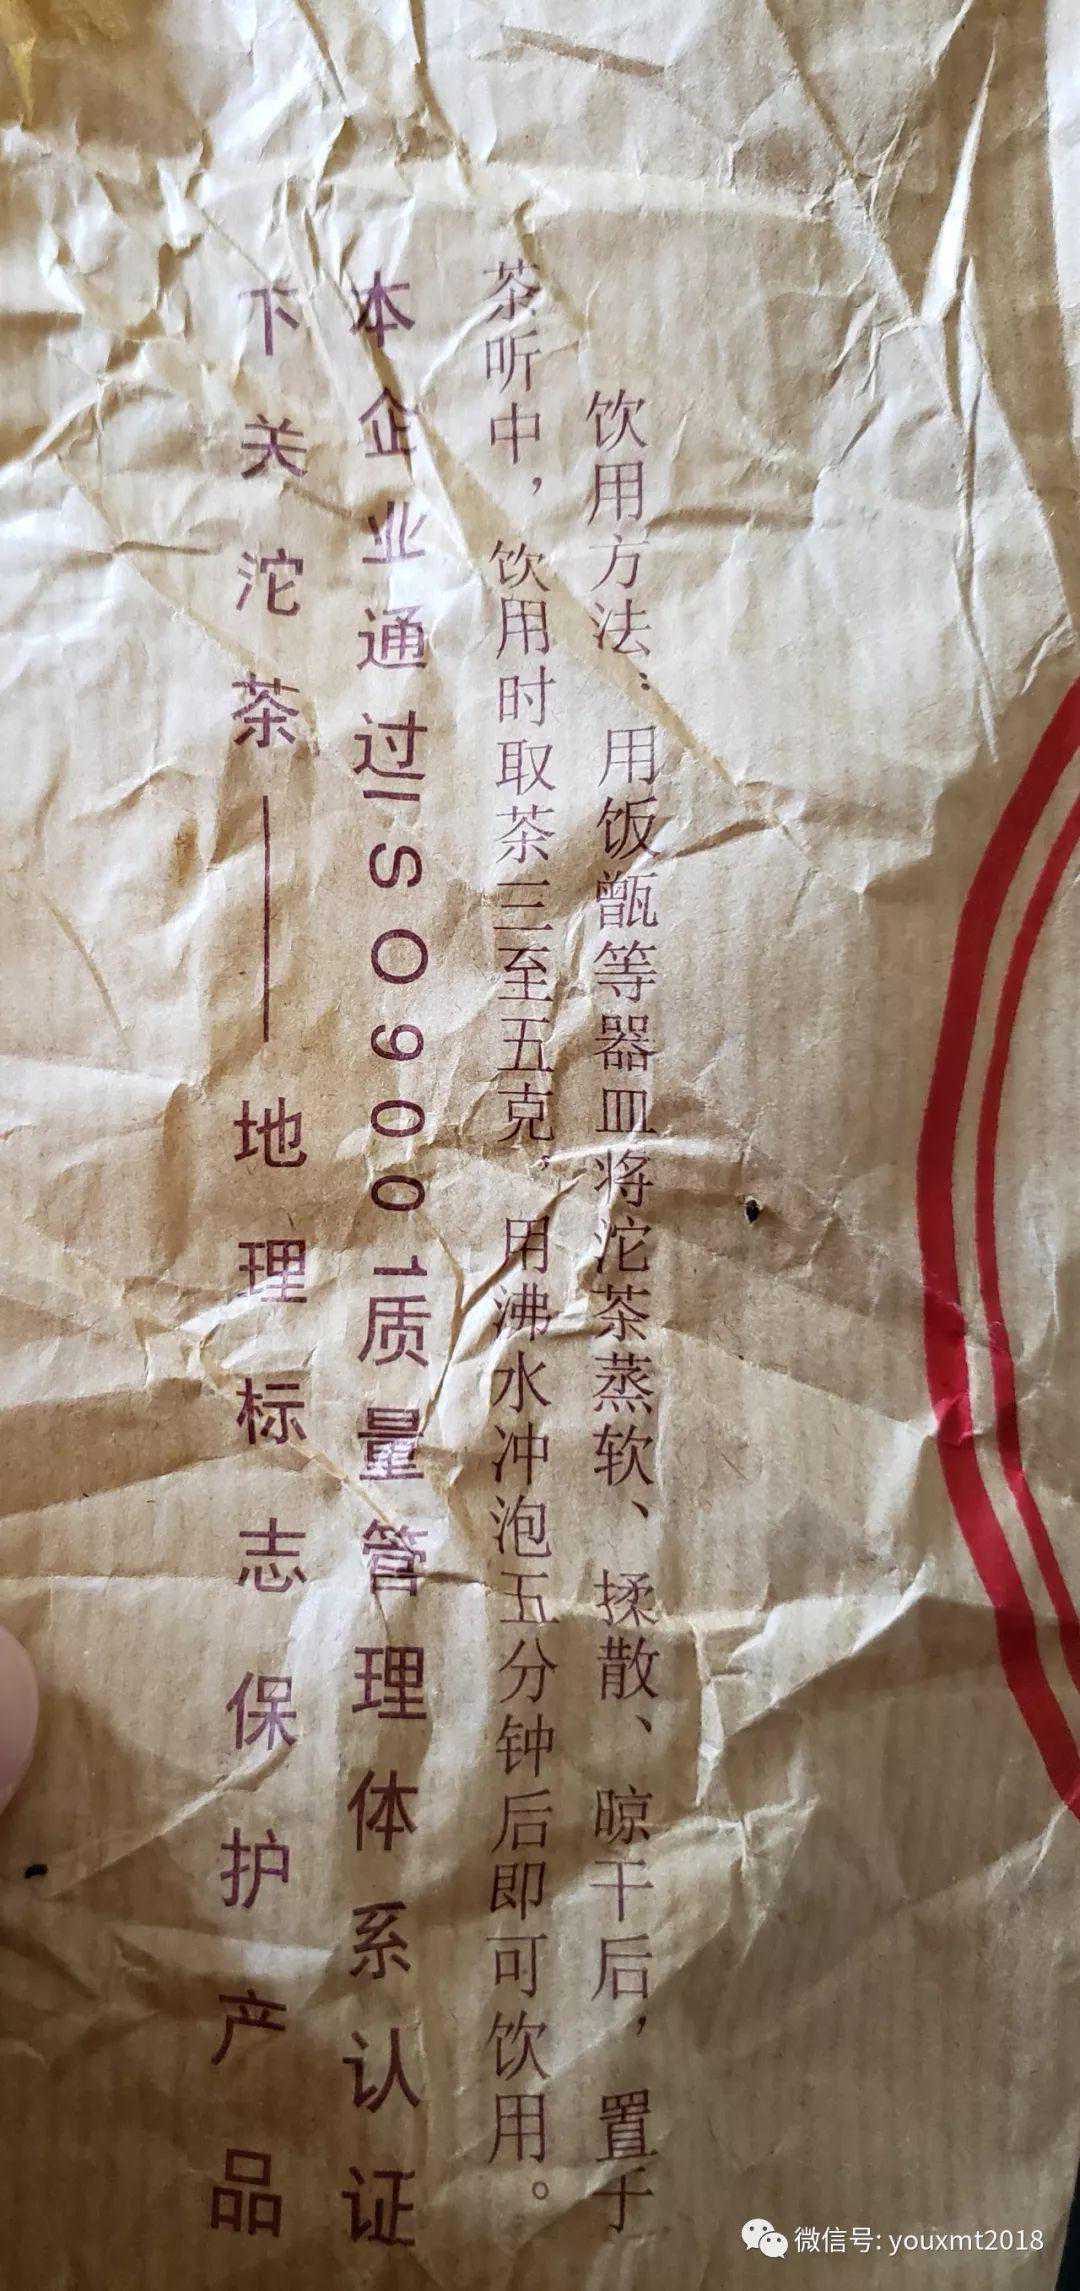 饮用方法：用饭甑等器皿将沱茶蒸软、揉散、晾干后，置于
茶听中，饮用时取茶三至五克，用沸水冲泡五分钟后即可饮用。
本企业通过ISO9001质量管理体系认证
下关沱茶——地理标志保护产品
微信号: youxmt2018